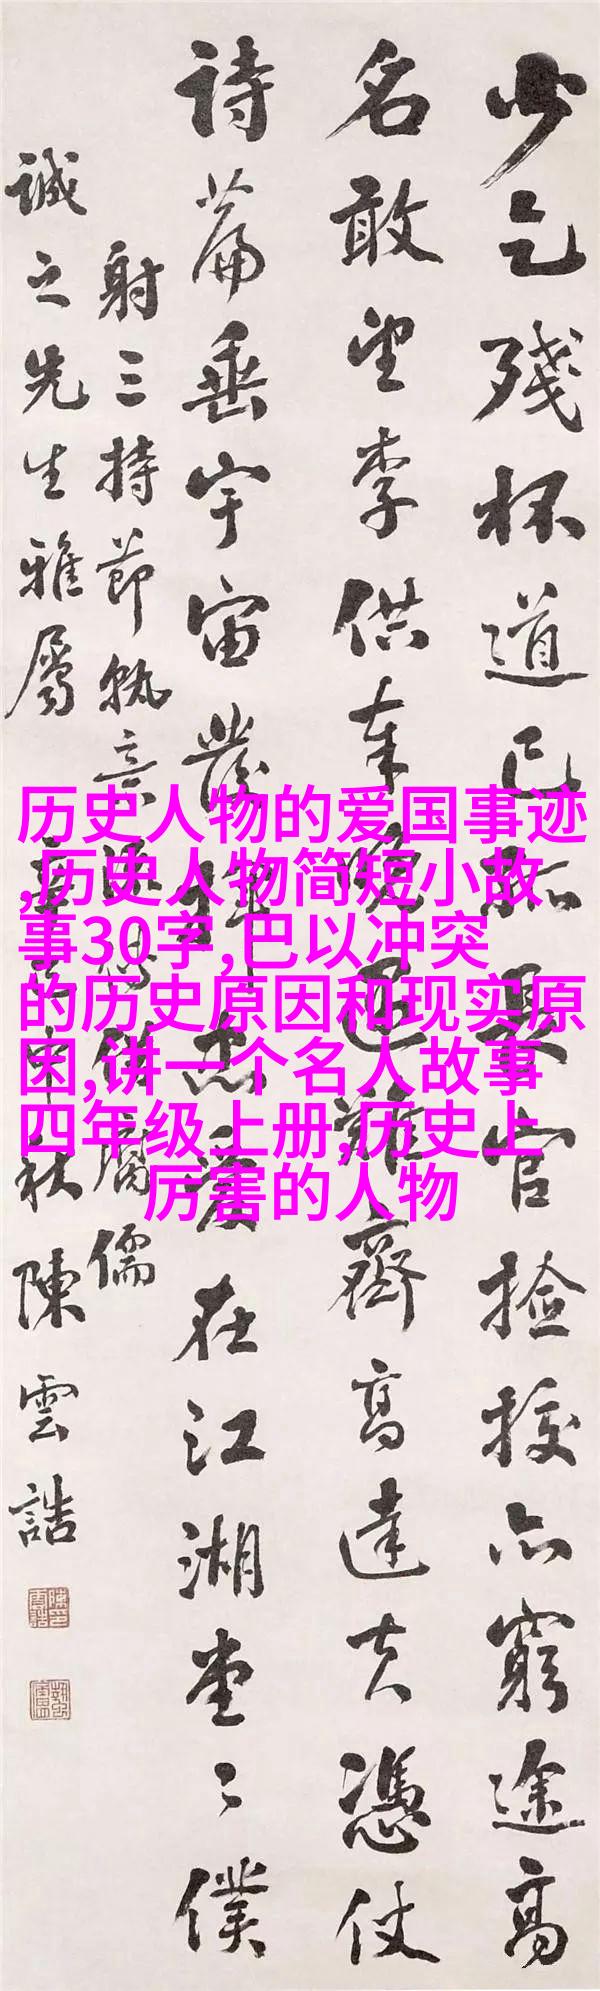 少乞殘杯道已孤官撿挍亦窮途高
名敢望李供奉晚遇難齊高達夫憑仗
詩篇垂宇宙發揮忠愛在江湖堂堂僕
射三持節孰腐儒
誠之先生雅屬 中秋陳雲誥
历史人物的爱国事迹
,历史人物简短小故
事30字,巴以冲突
的历史原因和现实原
因,讲一个名人故事
四年级上册,历史上
厉害的人物